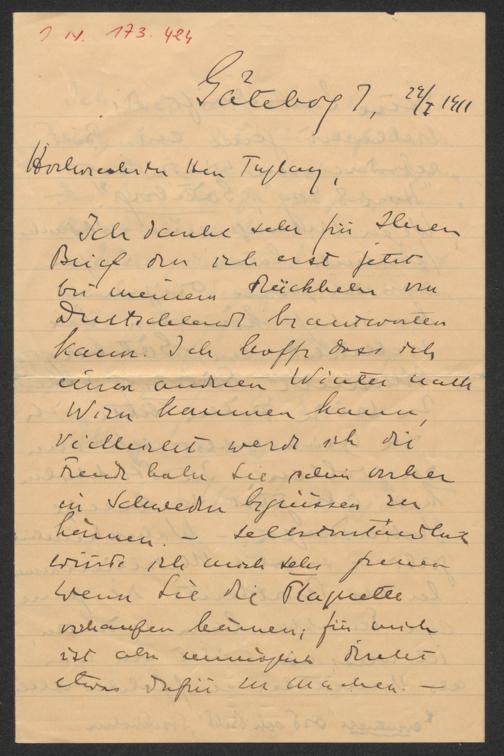 I N. 173.424
Göteborg 7, 24/I 1911
Hochverehrter Herr
Ich danke sehr für Ihren
Brief den ich erst jetzt
bei meinem Rückkehr von
Deutschland beantworten
kann. Ich hoffe dass ich
einen anderen Winter nach
Wien kommen kann,
vielleicht werde ich die
Freude haben Sie schon vorher
in Schweden begrüssen zu
können. – Selbstverständlich
würde ich mich sehr freuen
wenn Sie die Plaquette
verkaufen können; für mich
ist es unmöglich direkt
etwas dafür zu machen. –